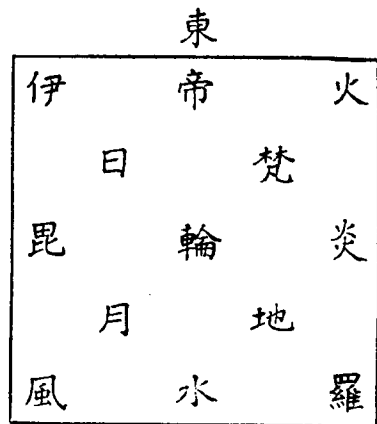 東
伊 帝 火
日 梵
毘 輪 炎
月 地
風 水 羅